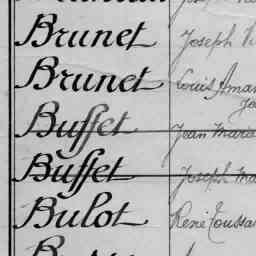 Brunet Joseph
Brunet Louis Aman
Buffet Jean Mara
Buffet Joseph Ma
Bulot René Toussa